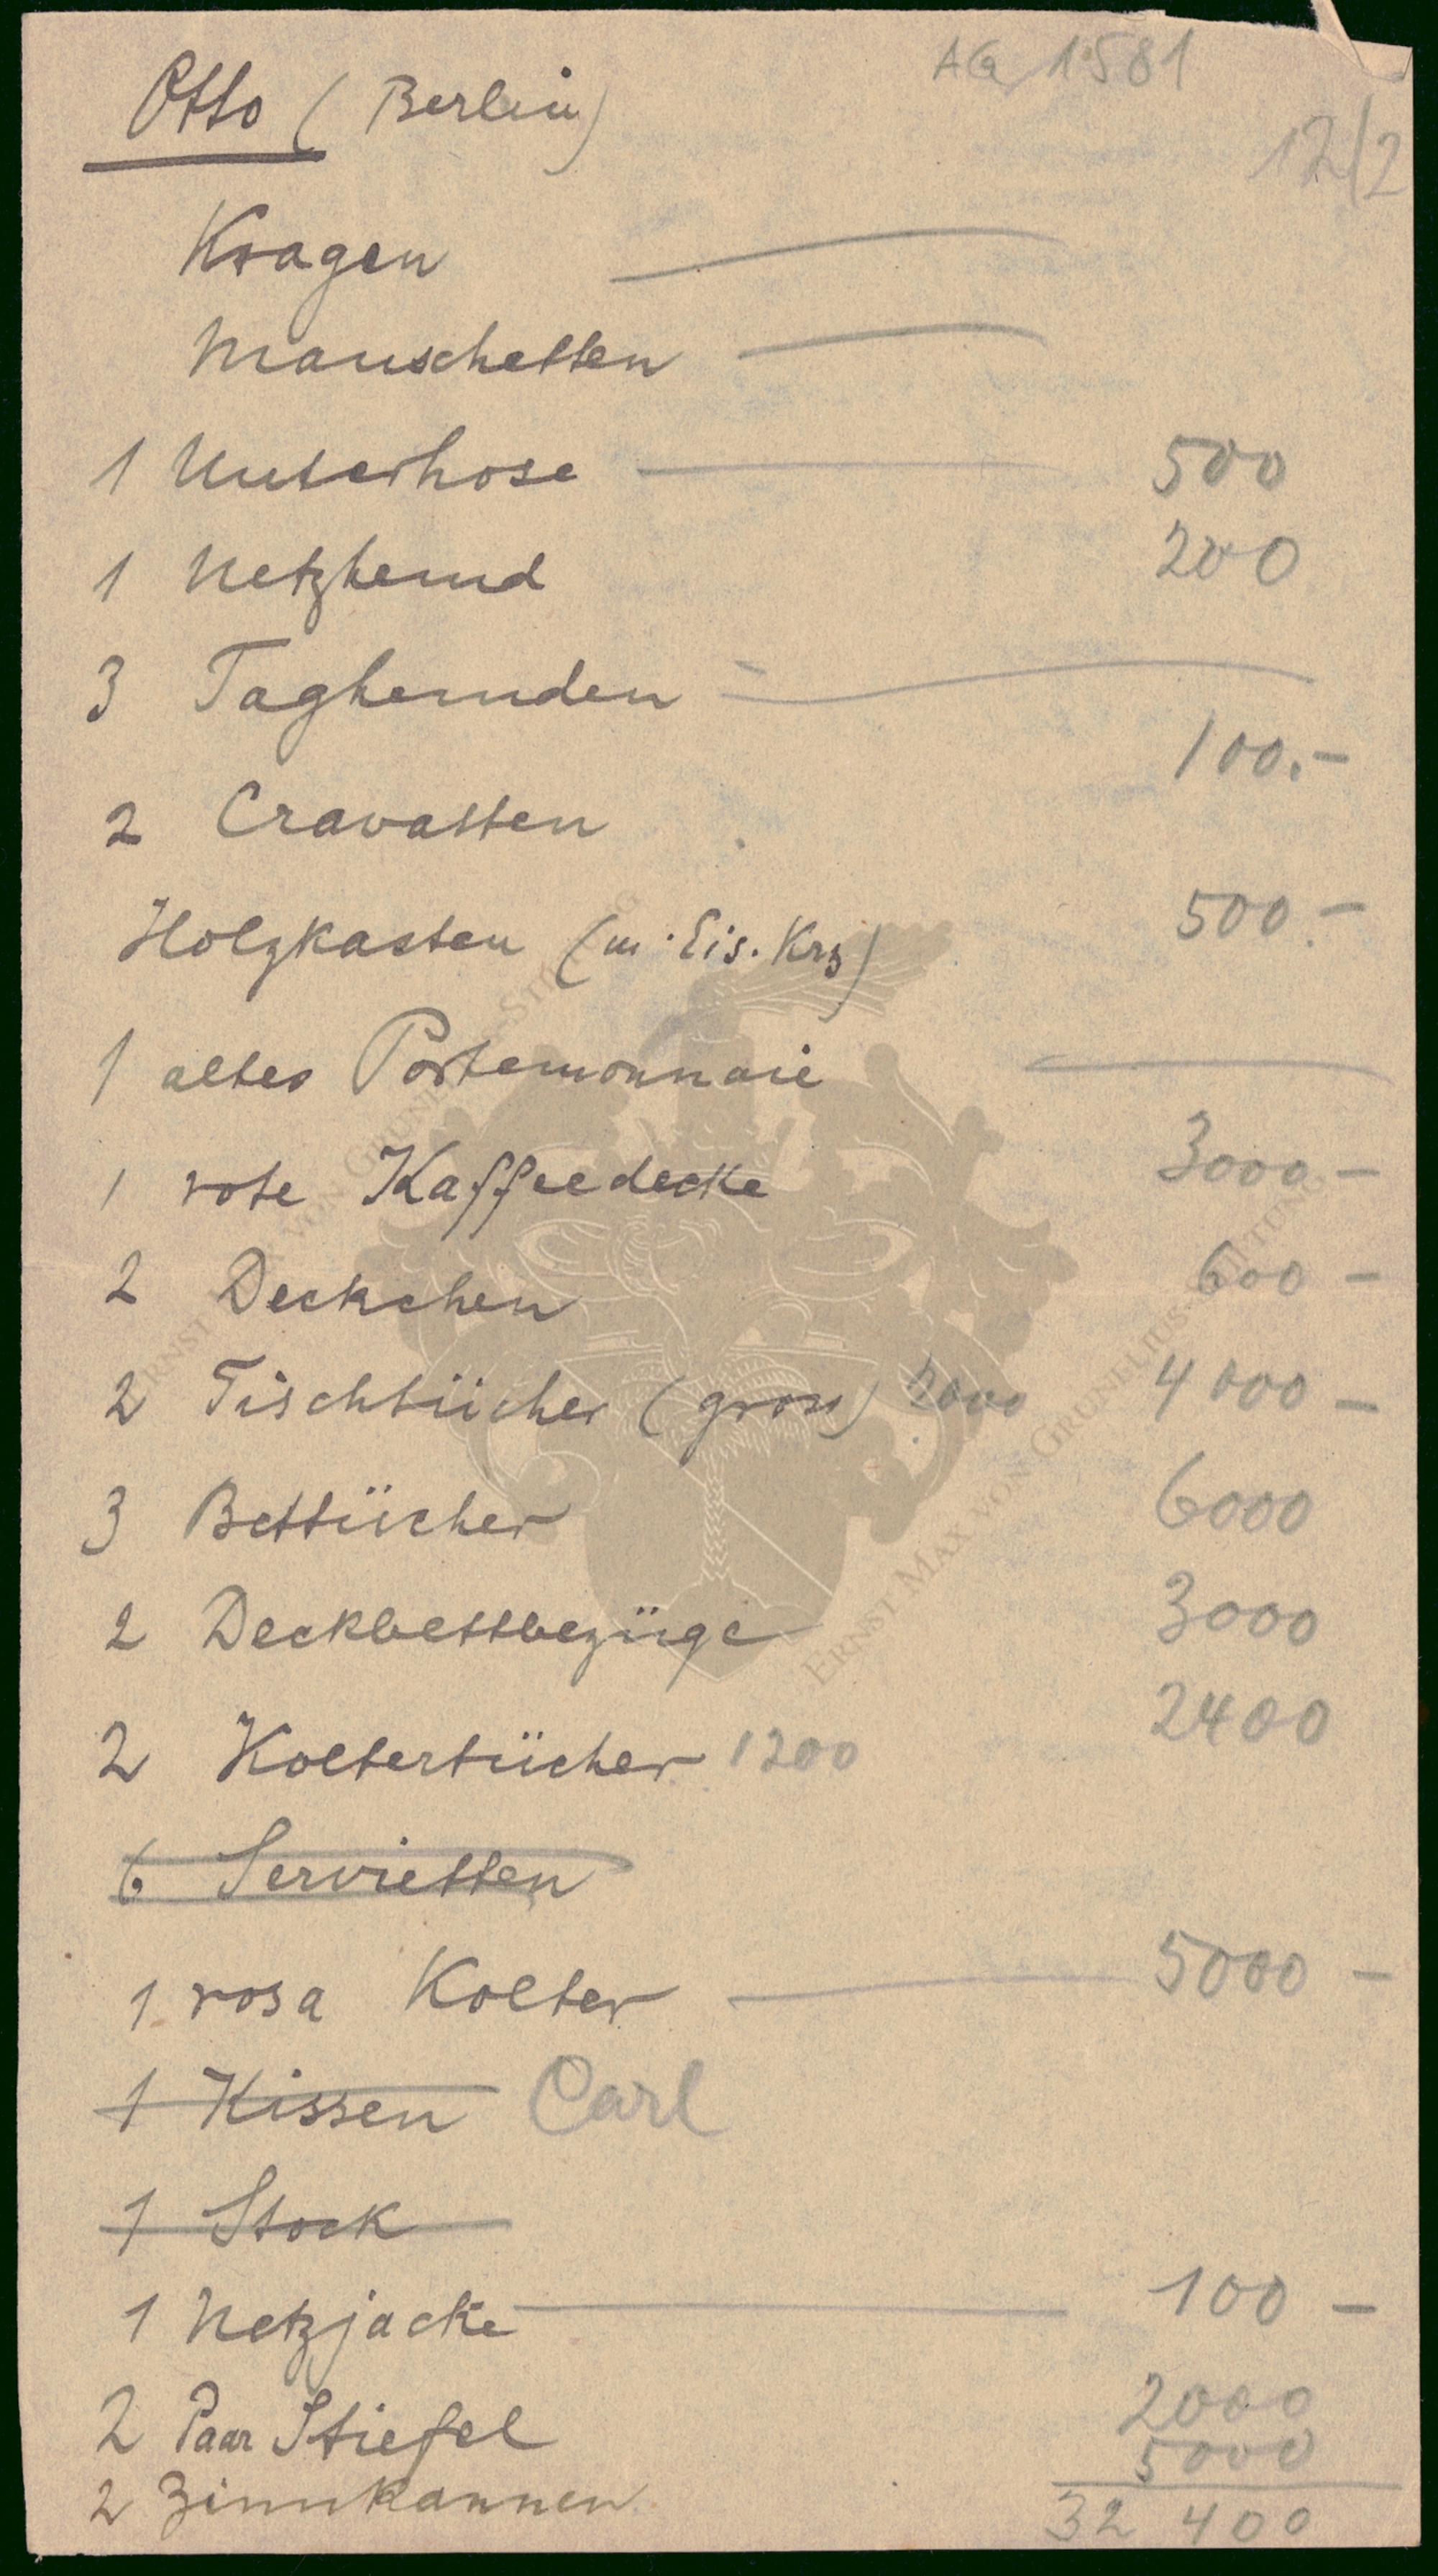 AG 1581
Otto (Berlin)
12/2
Kragen —
Manschetten —
1 Unterhose — 500
1 Netzhemd 200
3 Taghemden —
2 Cravatten 100.-
Holzkasten (m. Eis. Krz) 500.-
1 altes Portemonnaie —
1 rote Kaffeedecke 3000 -
2 Deckchen 600 -
2 Tischtücher (gross) 2000 4000 -
3 Bettücher 6000
2 Deckbettbezüge 3000
2 Koltertücher 1200 2400
6 Servietten
1 rosa Kolter — 5000 -
1 Kissen Carl
1 Stock
1 Netzjacke — 100 -
2 Paar Stiefel 2000
2 Zinnkannen 5000
32 400
ERNST MAX VON GRUNELIUS-STIFTUNG
ERNST MAX VON GRUNELIUS-STIFTUNG